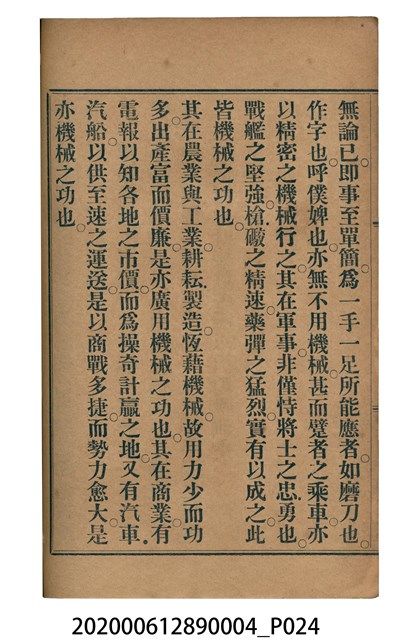 無論已即事至單簡爲一手一足所能應者如磨刀也
作字也呼僕婢也亦無不用機械甚而躄者之乘車亦
以精密之機械行之其在軍事非僅恃將士之忠勇也
戰艦之堅強槍礮之精速藥彈之猛烈實有以成之此
皆機械之功也
其在農業與工業耕耘製造恆藉機械故用力少而功
多出產富而價廉是亦廣用機械之功也其在商業有
電報以知各地之市價而爲操奇計贏之地又有汽車
汽船以供至速之運送是以商戰多捷而勢力愈大是
亦機械之功也
202000612890004_P024